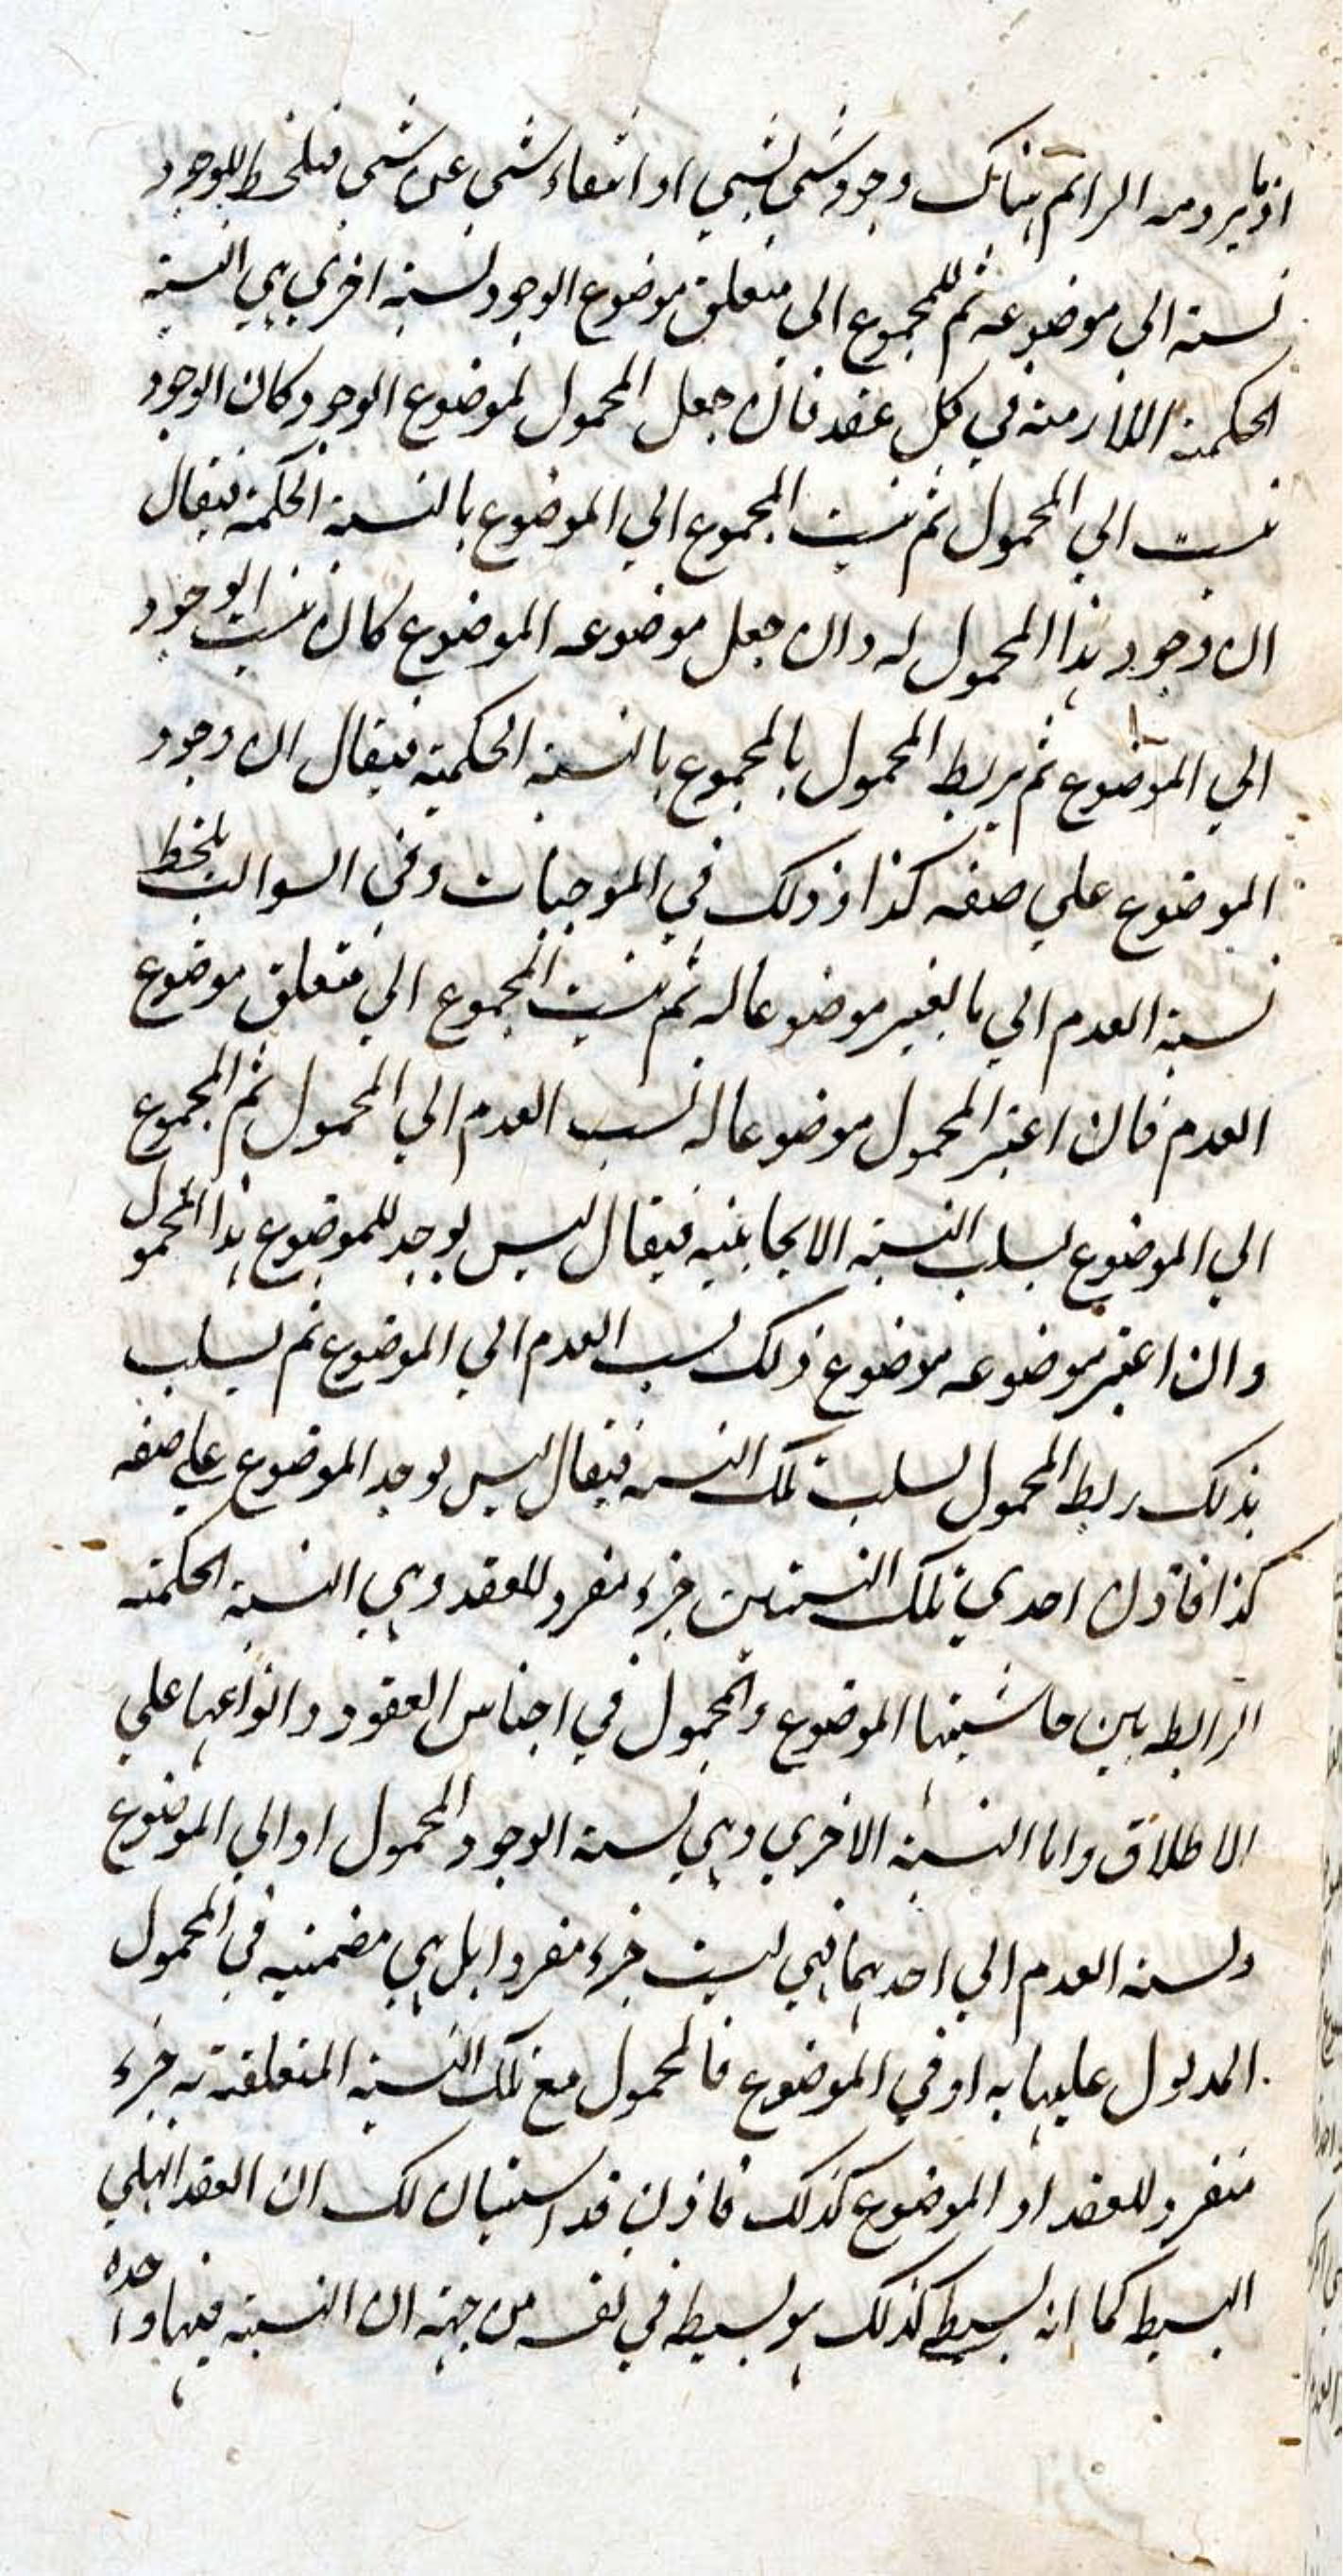 اذ ما يرومه الرائم هناك وجود شي لشي او انتفاء شي عن شي فتلحظ للوجود
نسبة الي موضوعه ثم للمجموع الي متعلق موضوع الوجود نسبة اخري هي النسبة
الحكمية اللازمة في كل عقد فان جعل المحمول لموضوع الوجود كان الوجود
نسبت الي المحمول ثم نسبت المجموع الي الموضوع بالنسبة الحكمية فيقال
ان وجود هذا المحمول له وان جعل موضوعه الموضوع كان نسبت الوجود
الي الموضوع ثم يربط المحمول بالمجموع بالنسبة الحكمية فيقال ان وجود
الموضوع علي صفة كذا وذلك في الموجبات وفي السوالب تلحظ
نسبة العدم الي ما يعتبر موضوعا له ثم نسبت المجموع الي متعلق موضوع
العدم فان اعتبر المحمول موضوعا له نسب العدم الي المحمول ثم المجموع
الي الموضوع بسلب النسبة الايجابية فيقال ليس يوجد للموضوع هذا المحمول
وان اعتبر موضوعه موضوع ذلك نسب العدم الي الموضوع ثم يسلب
بذلك ربط المحمول بسلب تلك النسبة فيقال ليس يوجد الموضوع علي صفة
كذا فاذن احدي تلك النسبتين جزء منفرد للعقد وهي النسبة الحكمية
الرابطه بين حاشيتها الموضوع والمحمول في اجناس العقود وانواعها علي
الاطلاق واما النسبة الاخري وهي نسبة الوجود المحمول او الي الموضوع
ونسبة العدم الي احدهما فهي ليست جزء منفردا بل هي مضمنيه في المحمول
المدلول عليها به او في الموضوع فالمحمول مع تلك النسبة المتعلقة به جزء
منفرد للعقد او الموضوع كذلك فاذن قد استبان لك ان العقد الهلي
البسيط كما انه بسيط كذلك هو بسيط في نفسه من جهة ان النسبة فيها واحده